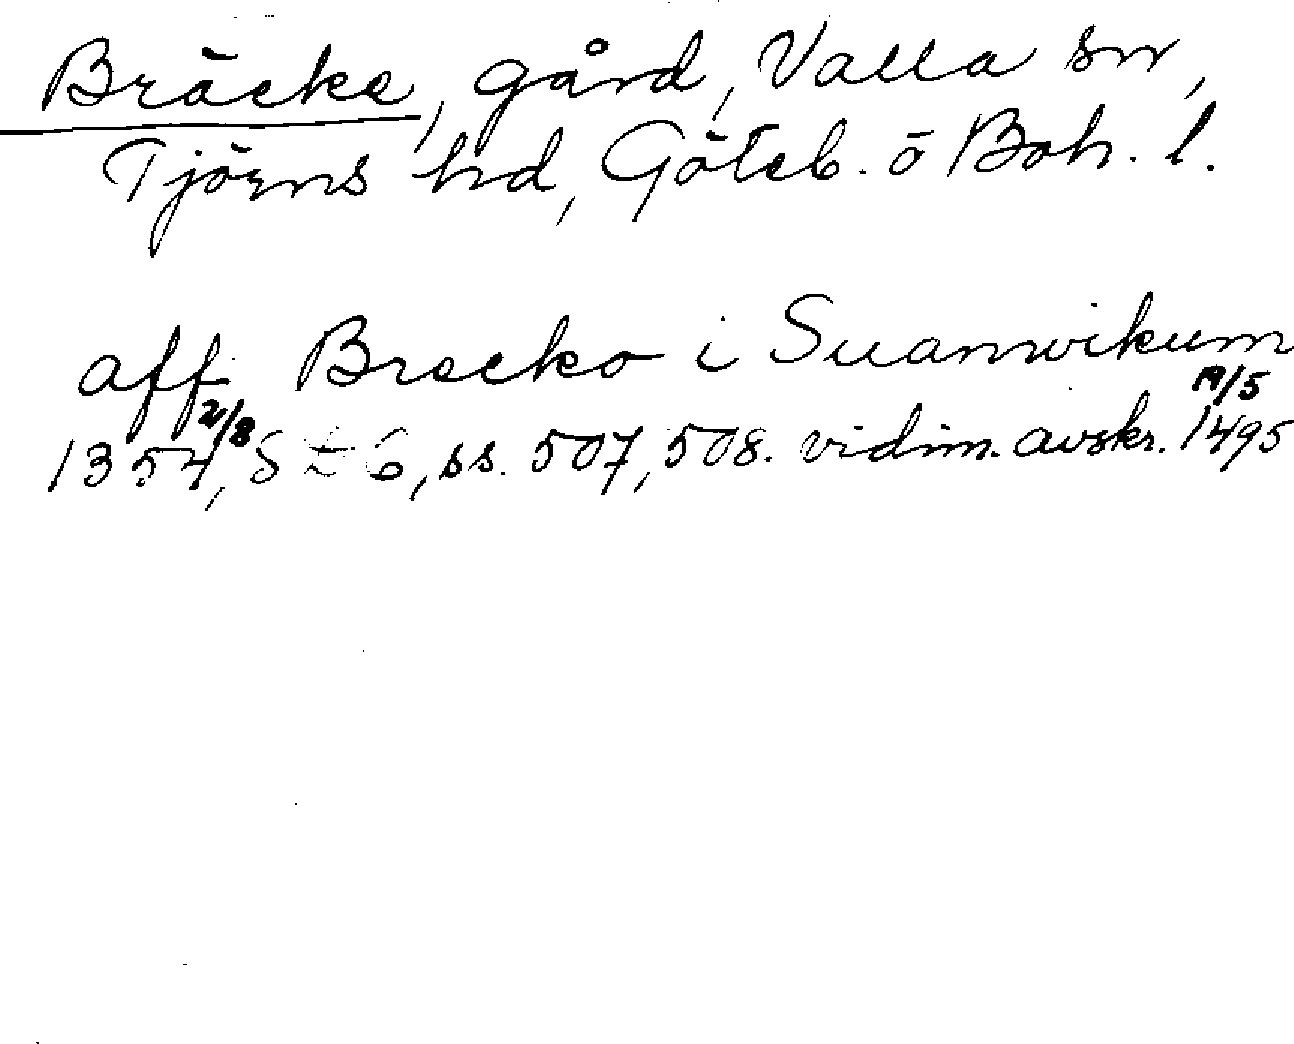 Bräcke, gård, Valla sn,
Tjörns hd, Göteb. o Boh. l.
aff Brecko i Suanwikum
1354 2/8, S 6, ss. 507, 508. vidim. avskr. 1495 19/5